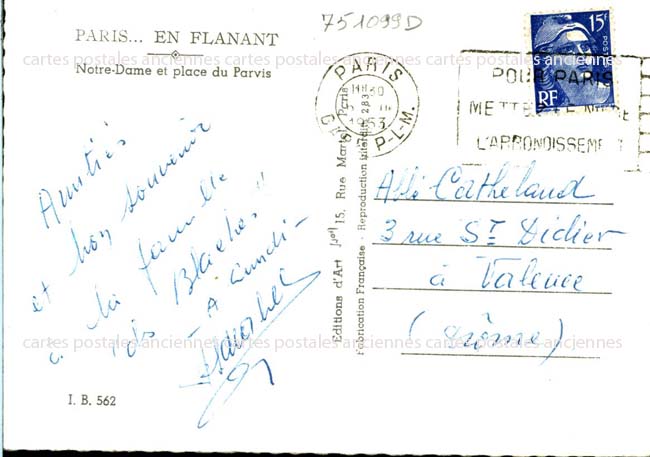 751099D
PARIS... EN FLANANT
Notre-Dame et place du Parvis
cartes postales anciennes cartes postales anciennes cartes postales anciennes cartes postales anciennes
Amitiés
et bon souvenir
à la famille
Blaches"
A lundi
I. B. 562
Editions d'Art 15, Rue Martel, Paris
Fabrication Française - Reproduction interdite
PARIS
1953
P.-L.-M.
15F
RF
POUR PARIS
METTEZ LE N
L'ARRONDISSEMENT
Catheland
3 rue St Didier
à Valence
(Drôme)
cartes postales anciennes cartes postales anciennes cartes postales anciennes cartes postales anciennes